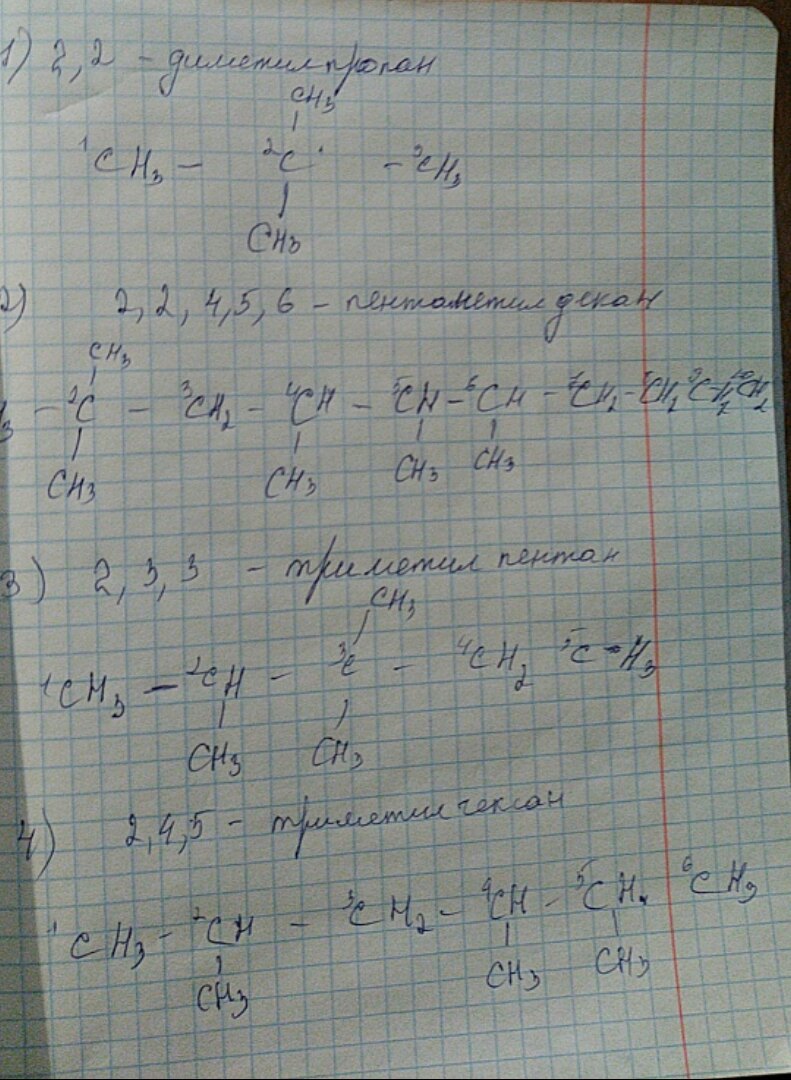 1) 2,2 - диметилпропан
CH3
1CH3 - 2C - 3CH3
CH3
2) 2, 2, 4, 5, 6 - пентаметил декан
CH3
3 - 2C - 3CH2 - 4CH - 5CH - 6CH - 7CH2 - CH2 9CH2 10CH2
CH3 CH3 CH3 CH3
3) 2, 3, 3 - триметил пентан
CH3
1CH3 - 2CH - 3C - 4CH2 5C-H3
CH3 CH3
4) 2,4,5 - триметилгексан
1CH3 - 2CH - 3CH2 - 4CH - 5CH 6CH3
CH3 CH3 CH3